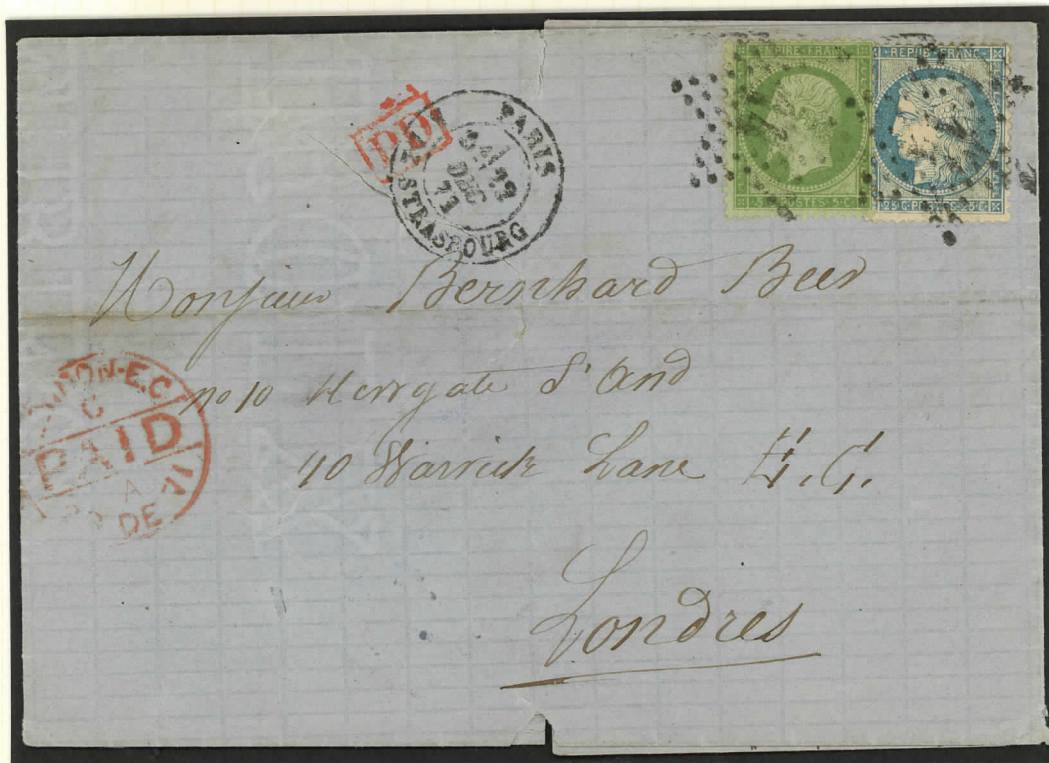 EMPIRE FRANC
REPUB FRANC
5 C POSTES 5 C
25 C POSTES 25 C
PD
PARIS
5E/
DEC
71
STRASBOURG
Monsieur Bernhard Beer
no 10 Newgate S' And
40 Warwick Lane E.C.
Londres
LONDON-E.C
C
PAID
A
DE
71